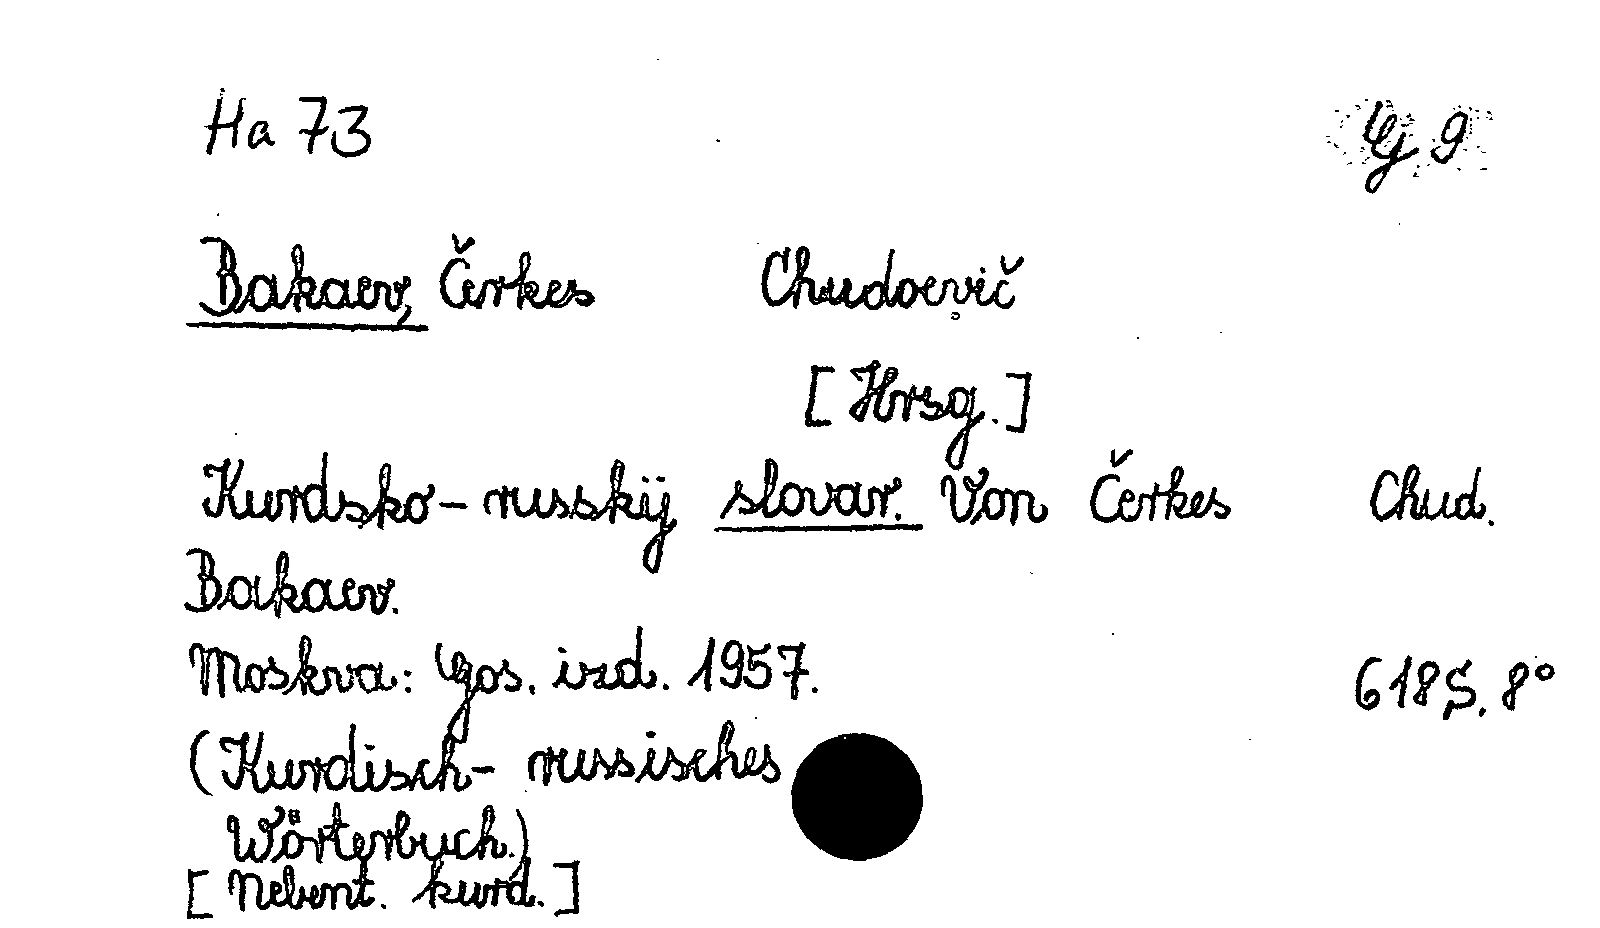 Ha 73 Gg 9
Bakaev, Čerkes Chudoevič
[Hrsg.]
Kurdsko-russkij slovar. Von Čerkes Chud.
Bakaev.
Moskva: Gos. izd. 1957. 618 S. 8°
(Kurdisch-russisches
Wörterbuch.)
[Nebent. kurd.]